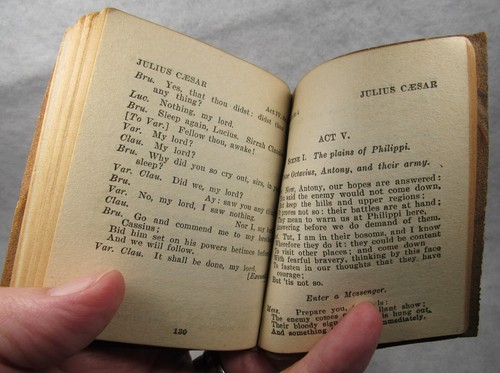 JULIUS CÆSAR
Act IV.
Bru. Yes, that thou didst: didst thou
any thing?
Luc. Nothing, my lord.
Bru. Sleep again, Lucius. Sirrah
[To Var.] Fellow thou, awake!
Var. My lord?
Clau. My lord?
Bru. Why did you so cry out, sirs, in
sleep?
Var. Clau. Did we, my lord?
Bru. Ay: saw you any
Var. No, my lord, I saw nothing.
Clau. Nor I, my
Bru. Go and commend me to my
Cassius;
Bid him set on his powers betimes before
And we will follow.
Var. Clau. It shall be done, my lord.
120
JULIUS CÆSAR
ACT V.
SCENE I. The plains of Philippi.
Octavius, Antony, and their army.
Now, Antony, our hopes are answered:
said the enemy would not come down,
keep the hills and upper regions;
proves not so: their battles are at hand;
They mean to warn us at Philippi here,
answering before we do demand of them.
Tut, I am in their bosoms, and I know
Wherefore they do it: they could be content
To visit other places; and come down
With fearful bravery, thinking by this face
To fasten in our thoughts that they have
courage;
But 'tis not so.
Enter a Messenger.
Mess. Prepare you,
The enemy comes show;
Their bloody sign hung out,
And something immediately.